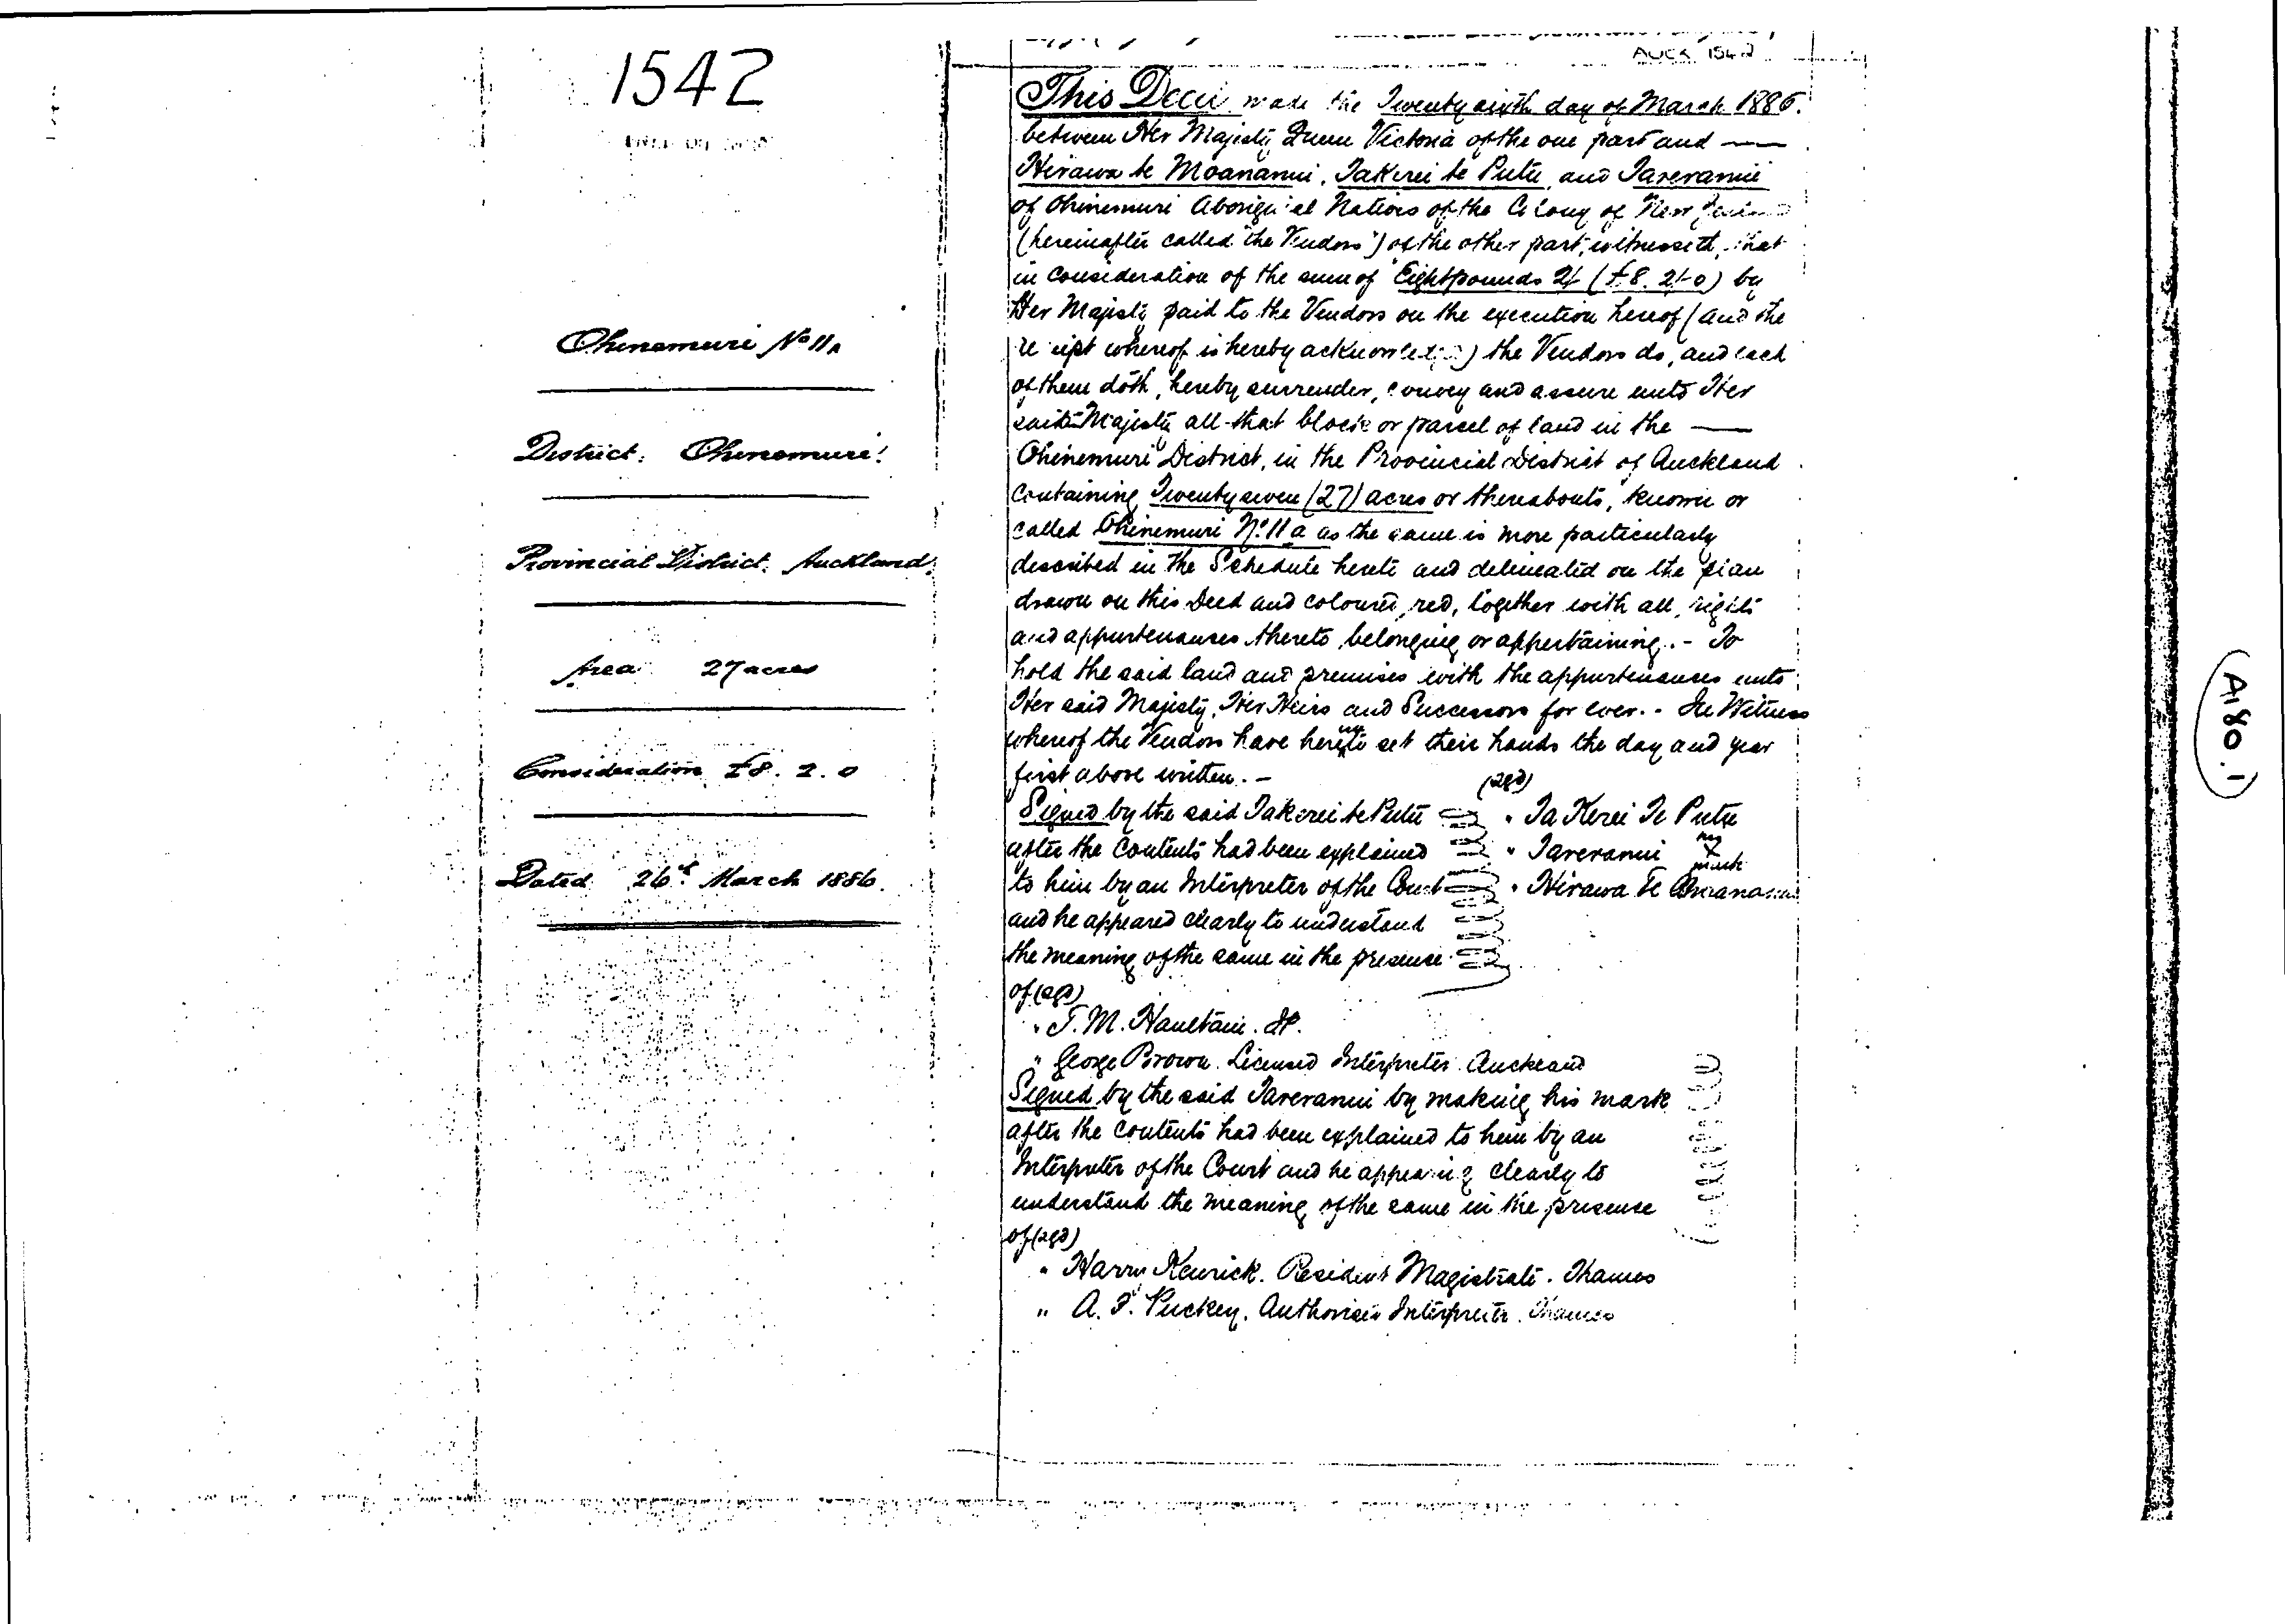 1542
Ohinemuri No 11A
District: Ohinemuri.
Provincial District. Auckland.
Area 27 acres
Consideration £8. 2. 0
Dated 26th March 1886.
AUCK 1542
This Deed made the Twenty sixth day of March 1886.
between Her Majesty Queen Victoria of the one part and ——
Hirawa te Moananui, Takerei te Putu, and Tareranui
of Ohinemuri Aboriginal Natives of the Colony of New Zealand
(hereinafter called "the Vendors") of the other part, witnesseth, that
in consideration of the sum of Eight pounds 2/- (£8. 2/-0) by
Her Majesty paid to the Vendors on the execution hereof (and the
receipt whereof is hereby acknowledged) the Vendors do, and each
of them doth, hereby surrender, convey and assure unto Her
said Majesty all that block or parcel of land in the ——
Ohinemuri District, in the Provincial District of Auckland
containing Twenty seven (27) acres or thereabouts, known or
called Ohinemuri No. 11a as the same is more particularly
described in the Schedule hereto and delineated on the plan
drawn on this Deed and coloured red, together with all rights
and appurtenances thereto belonging or appertaining. - To
hold the said land and premises with the appurtenances unto
Her said Majesty, Her Heirs and Successors for ever. - In Witness
whereof the Vendors have hereunto set their hands the day and year
first above written. -
(sgd)
Signed by the said Takerei te Putu " Ta Kerei Te Putu
after the contents had been explained " Tareranui his x mark
to him by an Interpreter of the Court " Hirawa Te Moananui
and he appeared clearly to understand
the meaning of the same in the presence
of (sgd)
" T. M. Haultain. JP.
" George Brown. Licensed Interpreter. Auckland
Signed by the said Tareranui by making his mark
after the contents had been explained to him by an
Interpreter of the Court and he appearing clearly to
understand the meaning of the same in the presence
of (sgd)
" Harry Kenrick. Resident Magistrate. Thames
" A. F. Puckey. Authorised Interpreter. Thames
(A180.1)